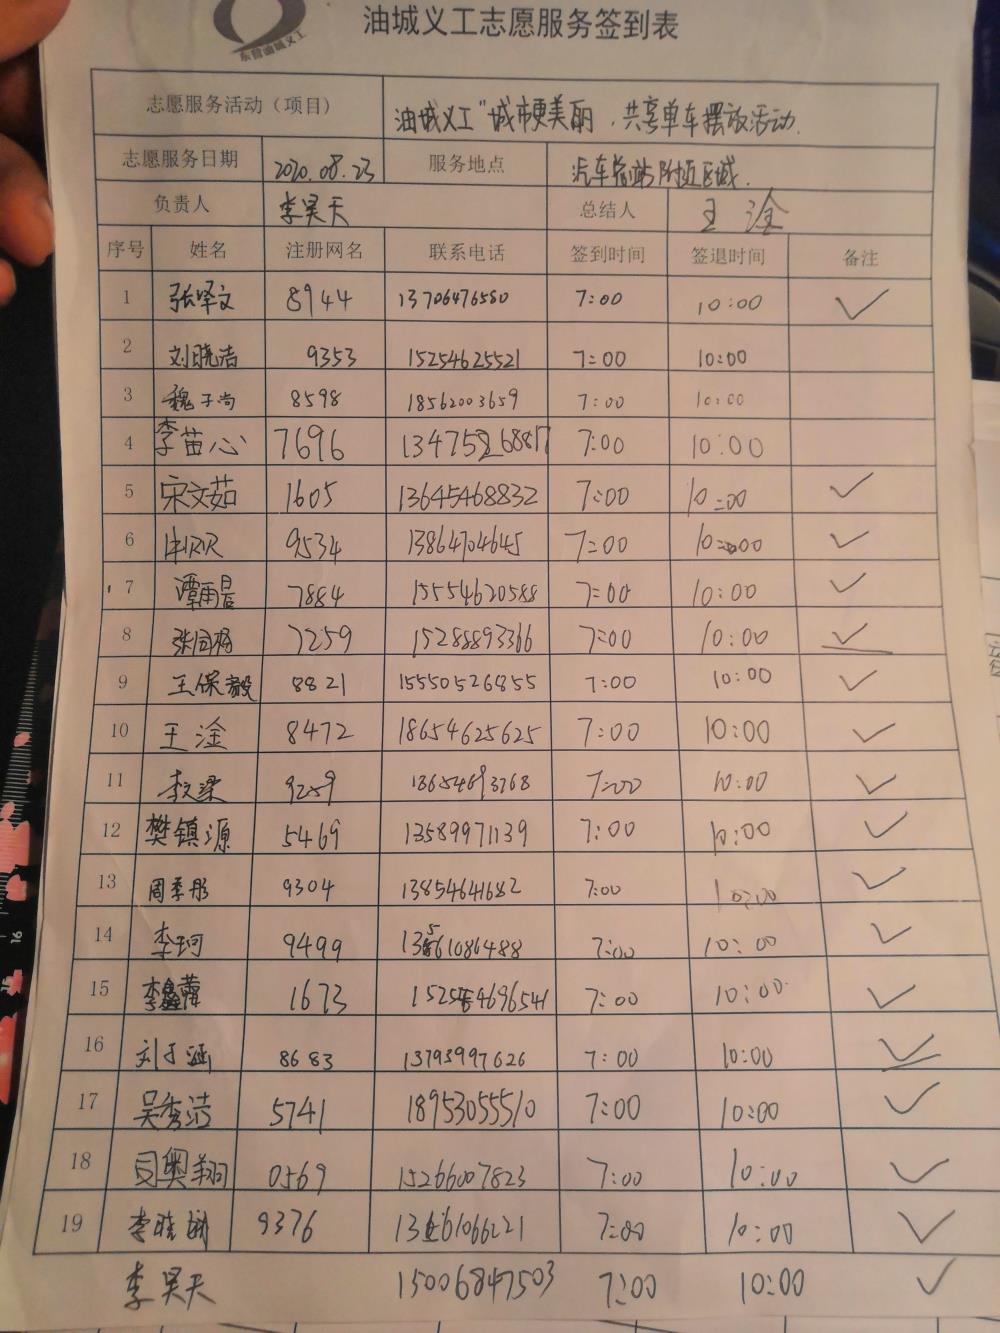 东营油城义工
油城义工志愿服务签到表
志愿服务活动（项目） 油城义工"城市更美丽，共享单车摆放活动.
志愿服务日期 2020.08.23 服务地点 汽车总站附近区域.
负责人 李昊天 总结人 王淦
序号 姓名 注册网名 联系电话 签到时间 签退时间 备注
1 张怿文 8944 13706476580 7:00 10:00 ✓
2 刘晓洁 9353 15254625521 7:00 10:00
3 魏子尚 8598 18562003659 7:00 10:00
4 李苗心 7696 7:00 10:00
5 宋文茹 1605 13645468832 7:00 10:00 ✓
6 9534 13864704645 7:00 10:00 ✓
7 谭雨晨 7884 15554620588 7:00 10:00 ✓
8 7259 15288893366 7:00 10:00 ✓
9 王保毅 8821 15550526855 7:00 10:00 ✓
10 王淦 8472 18654625625 7:00 10:00 ✓
11 9259 7:00 10:00 ✓
12 樊镇源 5469 13589971139 7:00 10:00 ✓
13 周季彤 9304 13854641682 7:00 10:00 ✓
14 李珂 9499 7:00 10:00 ✓
15 1673 7:00 10:00 ✓
16 刘子涵 8683 13793997626 7:00 10:00 ✓
17 吴秀洁 5741 18953055510 7:00 10:00 ✓
18 司奥翔 0569 15266007823 7:00 10:00 ✓
19 9376 7:00 10:00 ✓
李昊天 15006847503 7:00 10:00 ✓
16